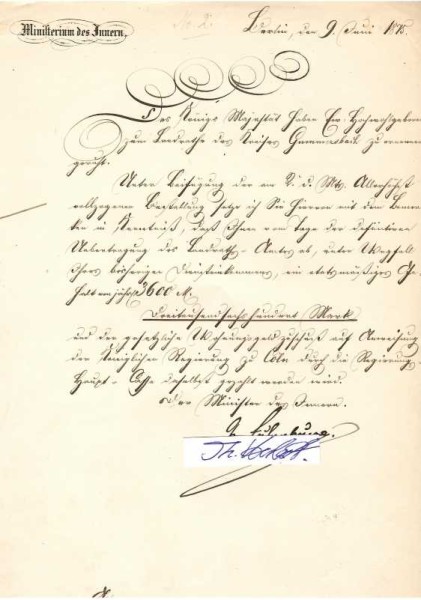 Ministerium des Innern.
No 2.
Berlin, den 9. Juni 1878.
Des Königs Majestät haben Ew. Hochwohlgeboren
zum Landrathe des Kreises Gummersbach zu ernennen
geruht.
Unter Beifügung der am 2. d. Mts. Allerhöchst
vollzogenen Bestallung setze ich Sie hiervon mit dem Bemer-
ken in Kenntniß, daß Ihnen vom Tage der definitiven
Uebertragung des Landraths-Amtes ab, unter Wegfall
Ihres bisherigen Diensteinkommens, ein etatsmäßiges Ge-
halt von jährlich 3600 M.
Dreitausendsechshundert Mark
und der gesetzliche Wohnungsgeldzuschuß auf Anweisung
der Königlichen Regierung zu Cöln durch die Regierungs-
Haupt-Casse daselbst gezahlt werden wird.
Der Minister des Innern.
G. Eulenburg.
Th.